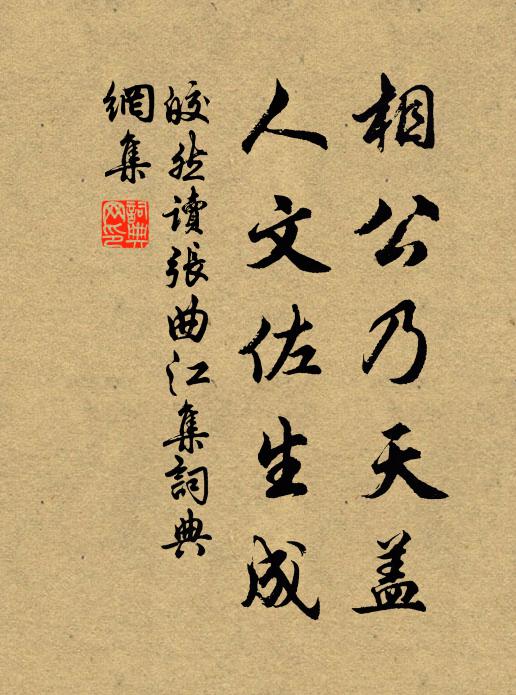 相公乃天盖
人文佐生成
皎然讀張曲江集詞典
網集
詞典网印